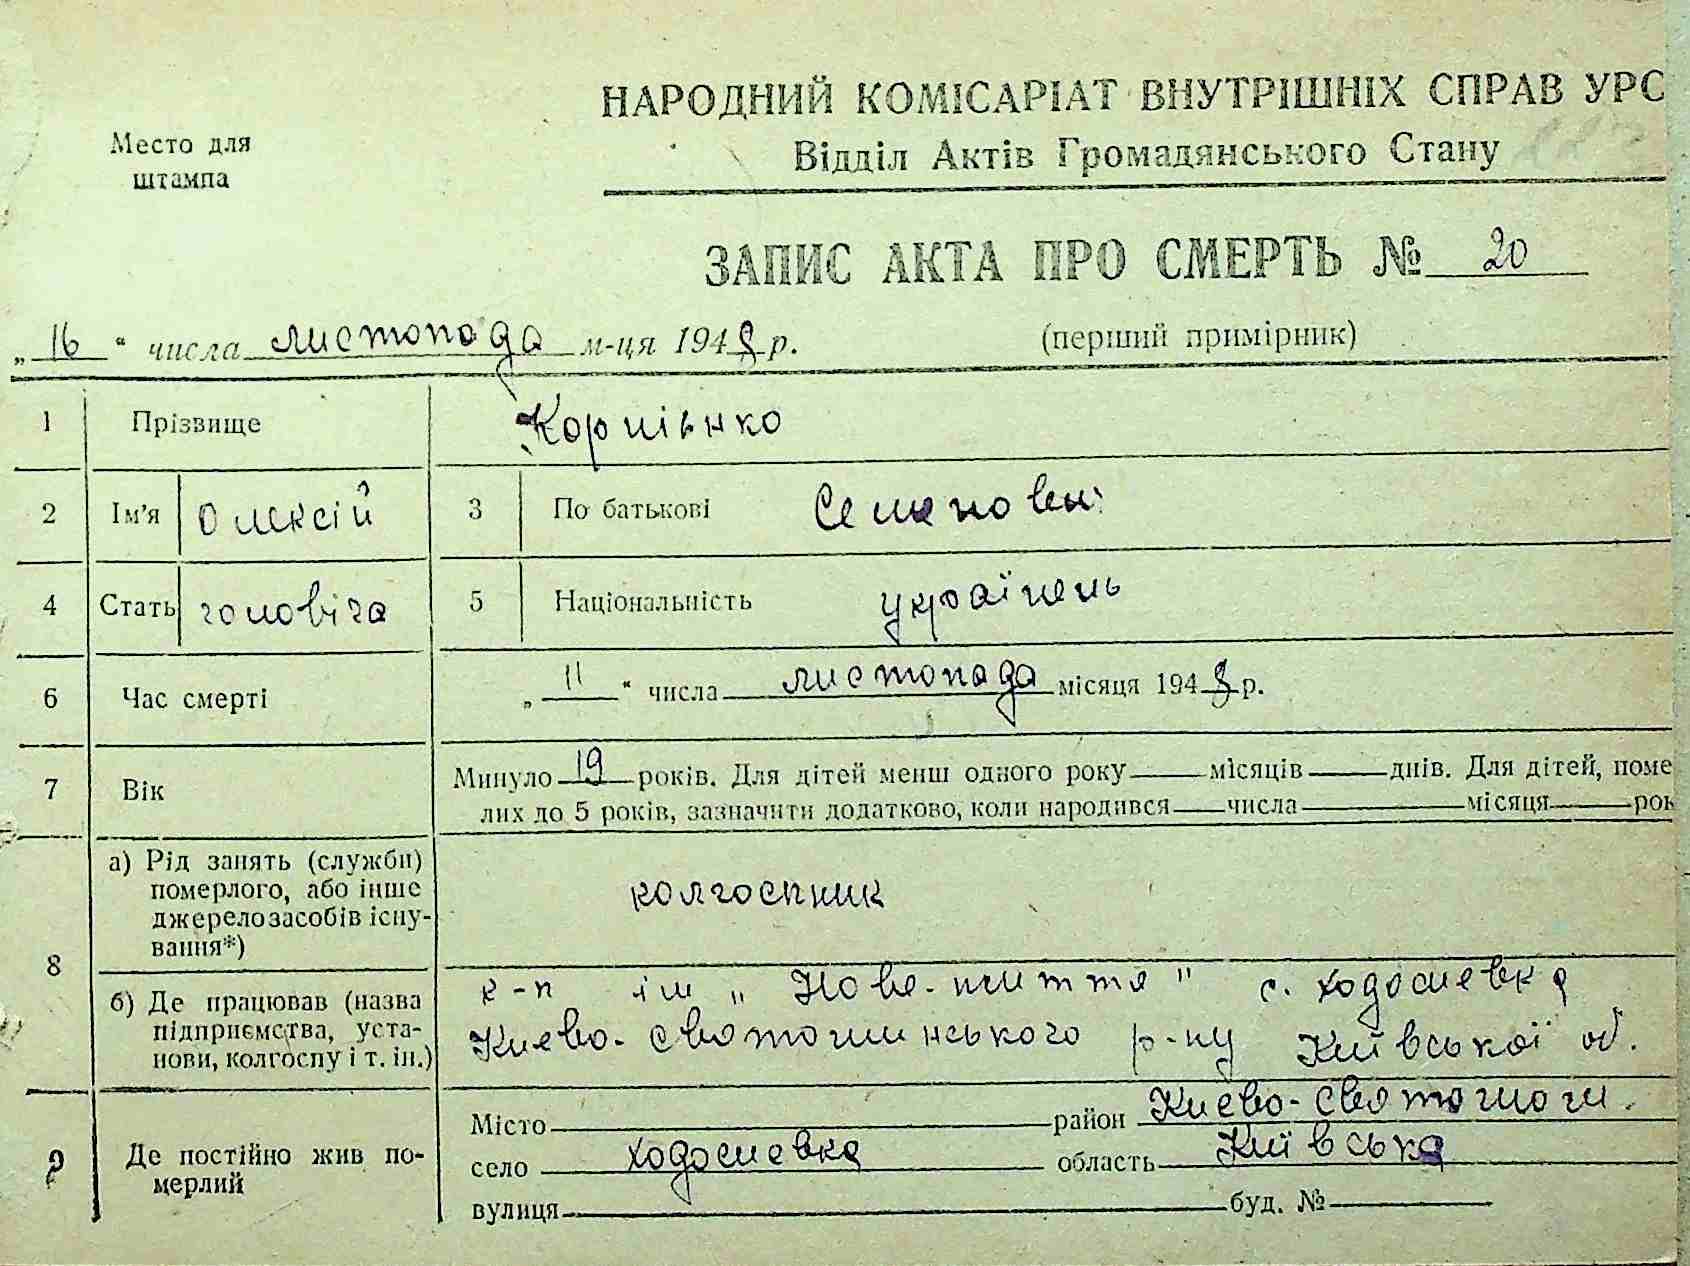 НАРОДНИЙ КОМІСАРІАТ ВНУТРІШНІХ СПРАВ УРС
Место для штампа
Відділ Актів Громадянського Стану
ЗАПИС АКТА ПРО СМЕРТЬ № 20
„16“ числа листопада м-ця 1948 р. (перший примірник)
1 Прізвище Корпієнко
2 Ім'я Олексій 3 По батькові Семенович
4 Стать чоловіча 5 Національність українець
6 Час смерті „11“ числа листопада місяця 1948 р.
7 Вік Минуло 19 років. Для дітей менш одного року місяців днів. Для дітей, поме
лих до 5 років, зазначити додатково, коли народився числа місяця рок
8 а) Рід занять (служби)
померлого, або інше
джерело засобів існу-
вання*)
колгоспник
б) Де працював (назва
підприємства, уста-
нови, колгоспу і т. ін.)
к-п ім „Нове-життя" с. Ходосиевка
Києво-Святошинського р-ну Київської об.
9 Де постійно жив по-
мерлий
Місто район Києво-Святошин.
село Ходосиевка область Київська
вулиця буд. №